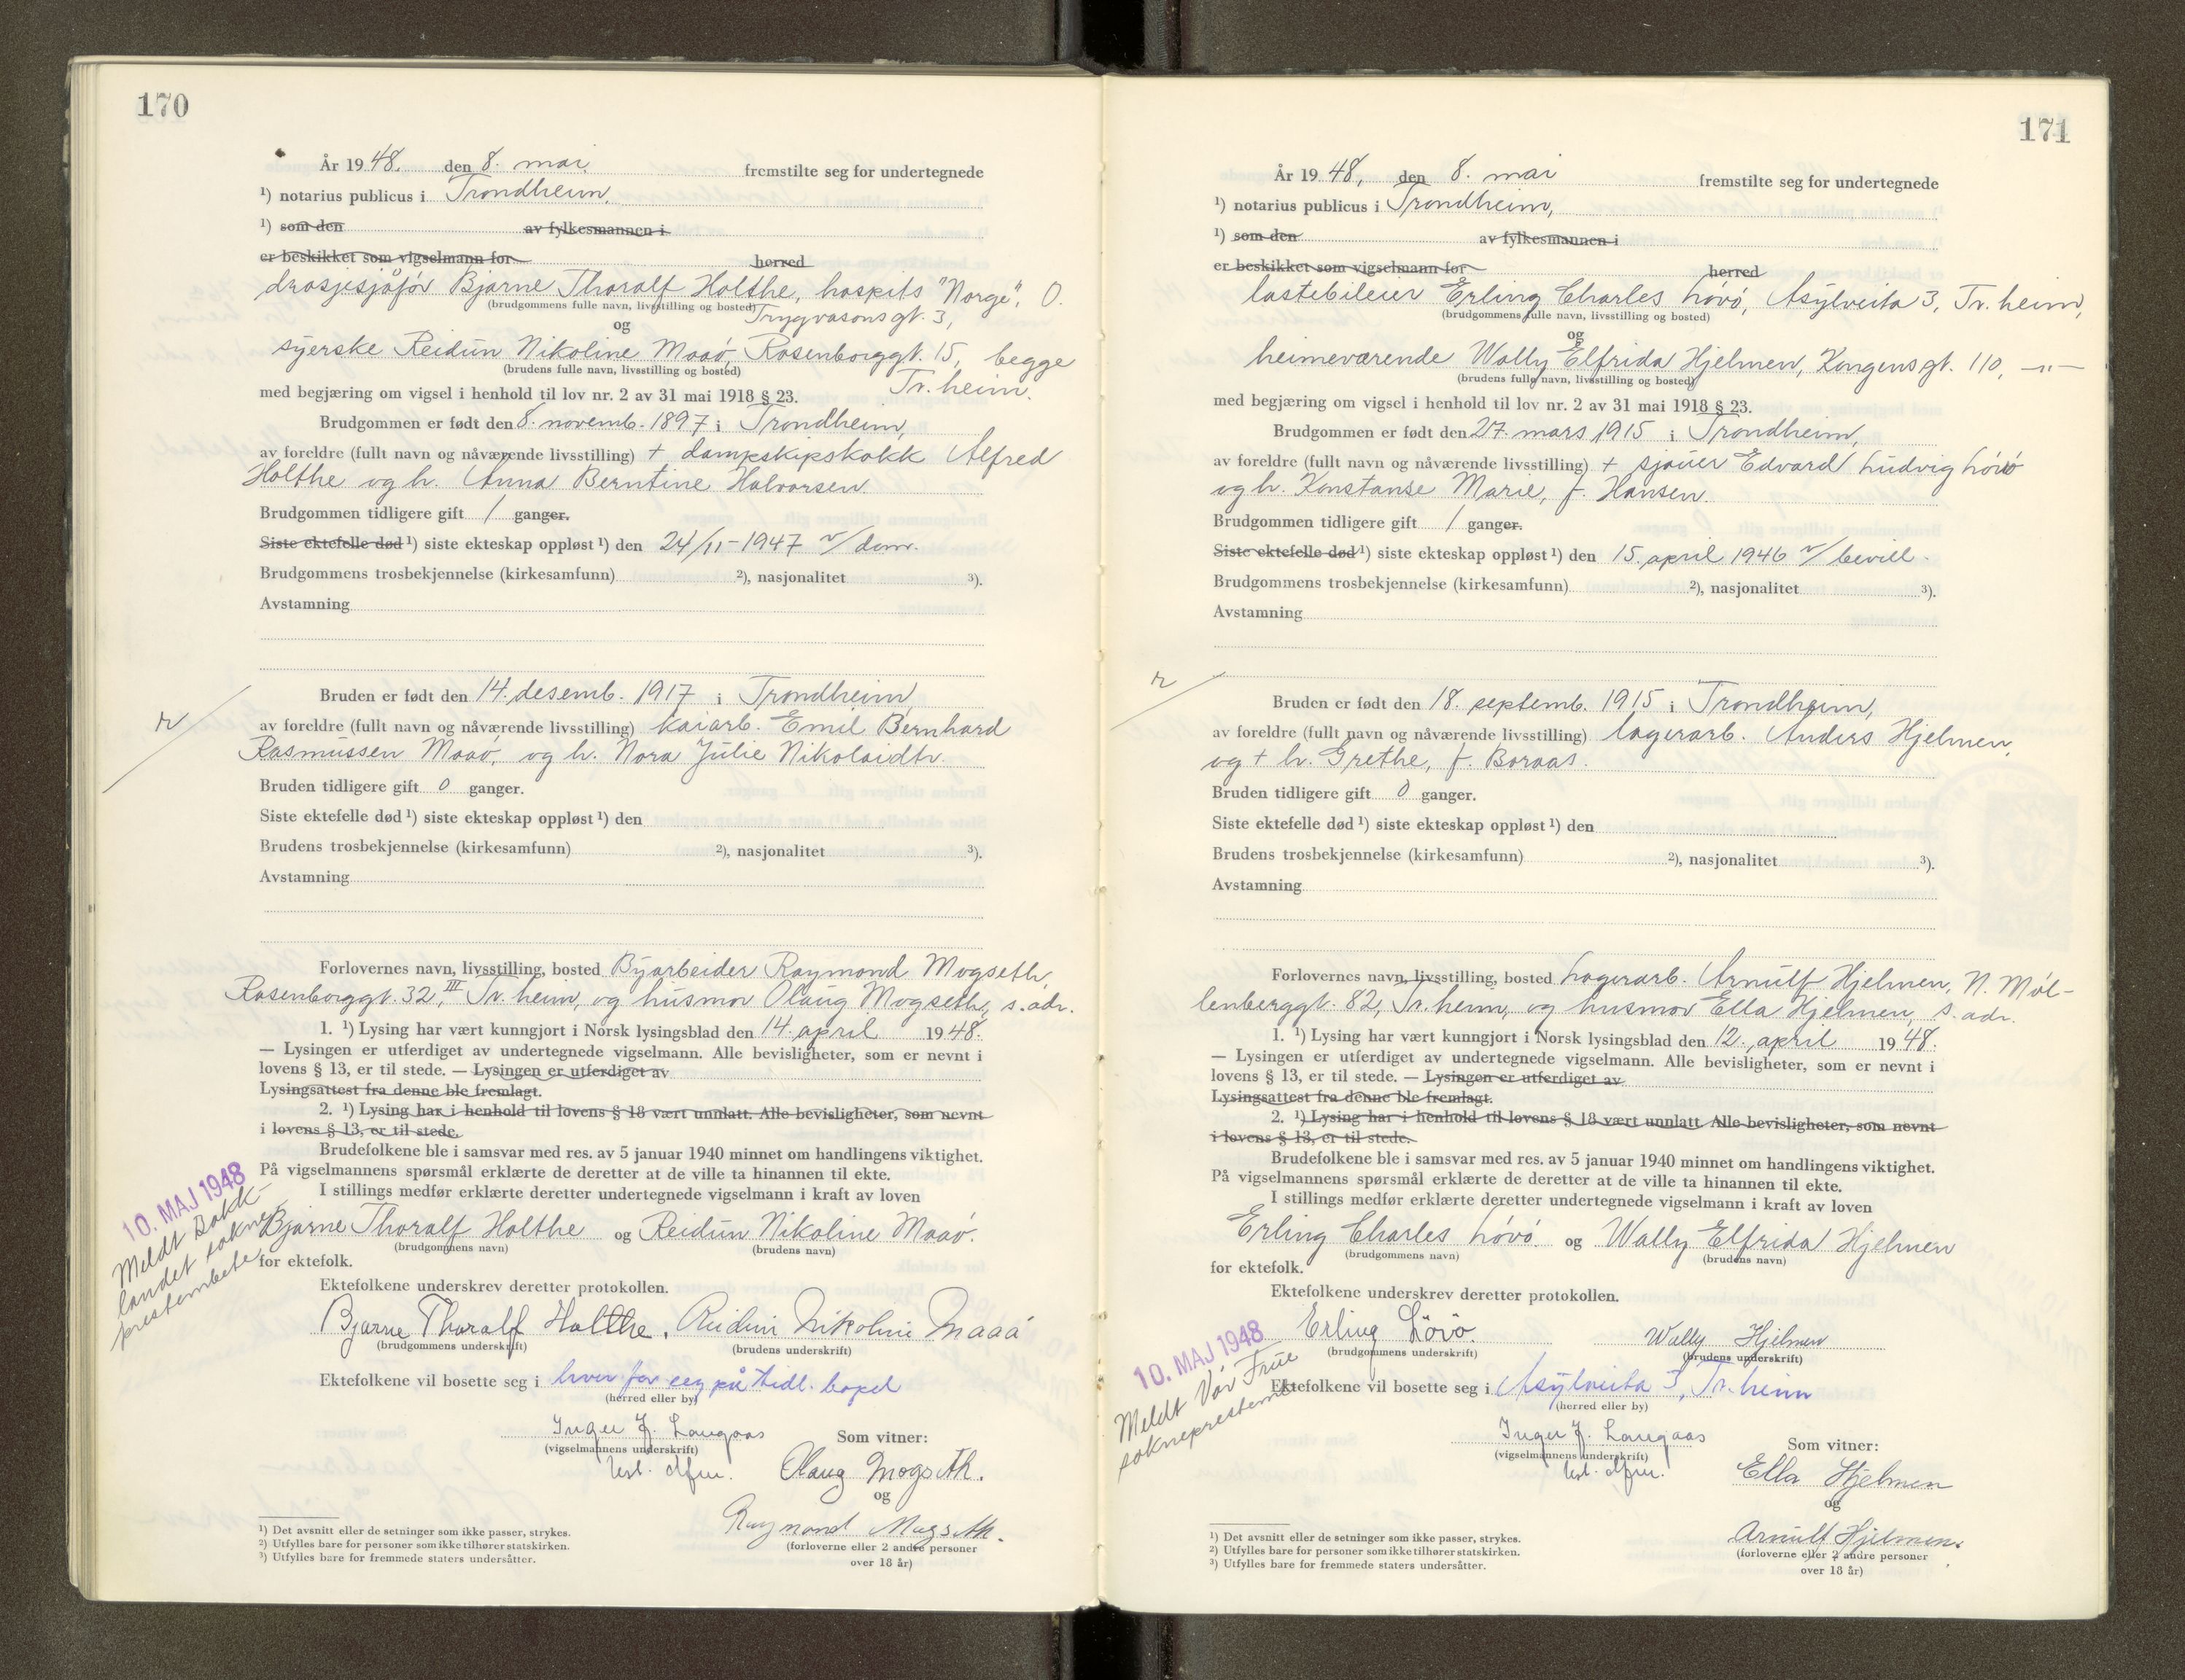 170
År 1948. den 8. mai. fremstilte seg for undertegnede
1) notarius publicus i Trondheim.
1) som den av fylkesmannen i
er beskikket som vigselmann for herred
drosjesjåfør Bjarne Thoralf Holthe, hospits "Norge", O.
(brudgommens fulle navn, livsstilling og bosted) Trygvasonsgt. 3,
og
syerske Reidun Nikoline Maaø, Rosenborggt. 15, begge
(brudens fulle navn, livsstilling og bosted)
Tr.heim.
med begjæring om vigsel i henhold til lov nr. 2 av 31 mai 1918 § 23.
Brudgommen er født den 8. novemb. 1897 i Trondheim,
av foreldre (fullt navn og nåværende livsstilling) + dampskipskokk Alfred
Holthe og h. Anna Berntine Halvorsen.
Brudgommen tidligere gift 1 ganger.
Siste ektefelle død 1) siste ekteskap oppløst 1) den 24/11-1947 v/dom.
Brudgommens trosbekjennelse (kirkesamfunn) 2), nasjonalitet 3).
Avstamning
Bruden er født den 14. desemb. 1917 i Trondheim,
av foreldre (fullt navn og nåværende livsstilling) kaiarb. Emil Bernhard
Rasmussen Maaø, og h. Nora Julie Nikolaidtr.
Bruden tidligere gift 0 ganger.
Siste ektefelle død 1) siste ekteskap oppløst 1) den
Brudens trosbekjennelse (kirkesamfunn) 2), nasjonalitet 3).
Avstamning
Forlovernes navn, livsstilling, bosted Byarbeider Raymond Mogseth,
Rosenborggt. 32, III Tr.heim, og husmor Olaug Mogseth, s. adr.
1. 1) Lysing har vært kunngjort i Norsk lysingsblad den 14. april 1948.
— Lysingen er utferdiget av undertegnede vigselmann. Alle bevisligheter, som er nevnt i
lovens § 13, er til stede. — Lysingen er utferdiget av
Lysingsattest fra denne ble fremlagt.
2. 1) Lysing har i henhold til lovens § 18 vært unnlatt. Alle bevisligheter, som nevnt
i lovens § 13, er til stede.
Brudefolkene ble i samsvar med res. av 5 januar 1940 minnet om handlingens viktighet.
På vigselmannens spørsmål erklærte de deretter at de ville ta hinannen til ekte.
I stillings medfør erklærte deretter undertegnede vigselmann i kraft av loven
10. MAJ 1948
Meldt Bakk-
landet sokne-
prestembete
Bjarne Thoralf Holthe og Reidun Nikoline Maaø.
(brudgommens navn) (brudens navn)
for ektefolk.
Ektefolkene underskrev deretter protokollen.
Bjarne Thoralf Holthe. Reidun Nikoline Maaø
(brudgommens underskrift) (brudens underskrift)
Ektefolkene vil bosette seg i hver for seg på tidl. bopel
(herred eller by)
Inger J. Langaas
(vigselmannens underskrift)
Som vitner:
Olaug Mogseth.
og
Raymond Mogseth.
(forloverne eller 2 andre personer
over 18 år)
1) Det avsnitt eller de setninger som ikke passer, strykes.
2) Utfylles bare for personer som ikke tilhører statskirken.
3) Utfylles bare for fremmede staters undersåtter.
171
År 1948, den 8. mai fremstilte seg for undertegnede
1) notarius publicus i Trondheim,
1) som den av fylkesmannen i
er beskikket som vigselmann for herred
lastebileier Erling Charles Løvø, Asylveita 3, Tr.heim,
(brudgommens fulle navn, livsstilling og bosted)
og
heimeværende Wally Elfrida Hjelmen, Kongensgt. 110, —"—
(brudens fulle navn, livsstilling og bosted)
med begjæring om vigsel i henhold til lov nr. 2 av 31 mai 1918 § 23.
Brudgommen er født den 27. mars 1915 i Trondheim,
av foreldre (fullt navn og nåværende livsstilling) + sjauer Edvard Ludvig Løvø
og h. Konstanse Marie, f. Hansen.
Brudgommen tidligere gift 1 ganger.
Siste ektefelle død 1) siste ekteskap oppløst 1) den 15. april 1946 v/bevill.
Brudgommens trosbekjennelse (kirkesamfunn) 2), nasjonalitet 3).
Avstamning
Bruden er født den 18. septemb. 1915 i Trondheim,
av foreldre (fullt navn og nåværende livsstilling) lagerarb. Anders Hjelmen,
og + h. Grethe, f. Boraas.
Bruden tidligere gift 0 ganger.
Siste ektefelle død 1) siste ekteskap oppløst 1) den
Brudens trosbekjennelse (kirkesamfunn) 2), nasjonalitet 3).
Avstamning
Forlovernes navn, livsstilling, bosted Lagerarb. Arnulf Hjelmen, N. Møl-
lenberggt. 82, Tr.heim, og husmor Ella Hjelmen, s. adr.
1. 1) Lysing har vært kunngjort i Norsk lysingsblad den 12. april 1948.
— Lysingen er utferdiget av undertegnede vigselmann. Alle bevisligheter, som er nevnt i
lovens § 13, er til stede. — Lysingen er utferdiget av
Lysingsattest fra denne ble fremlagt.
2. 1) Lysing har i henhold til lovens § 18 vært unnlatt Alle bevisligheter, som nevnt
i lovens § 13, er til stede.
Brudefolkene ble i samsvar med res. av 5 januar 1940 minnet om handlingens viktighet.
På vigselmannens spørsmål erklærte de deretter at de ville ta hinannen til ekte.
I stillings medfør erklærte deretter undertegnede vigselmann i kraft av loven
Erling Charles Løvø og Wally Elfrida Hjelmen
(brudgommens navn) (brudens navn)
for ektefolk.
Ektefolkene underskrev deretter protokollen.
10. MAJ 1948
Meldt Vår Frue
sokneprestemb.
Erling Lövö. Wally Hjelmen
(brudgommens underskrift) (brudens underskrift)
Ektefolkene vil bosette seg i Asylveita 3, Tr.heim
(herred eller by)
Inger J. Langaas
(vigselmannens underskrift)
Som vitner:
Ella Hjelmen
og
Arnulf Hjelmen.
(forloverne eller 2 andre personer
over 18 år)
1) Det avsnitt eller de setninger som ikke passer, strykes.
2) Utfylles bare for personer som ikke tilhører statskirken.
3) Utfylles bare for fremmede staters undersåtter.